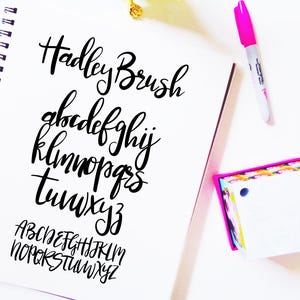 Hadley Brush
abcdefghij
klmnopqrs
tuvwxyz
ABCDEFGHIJKLM
NOPQRSTUVWXYZ